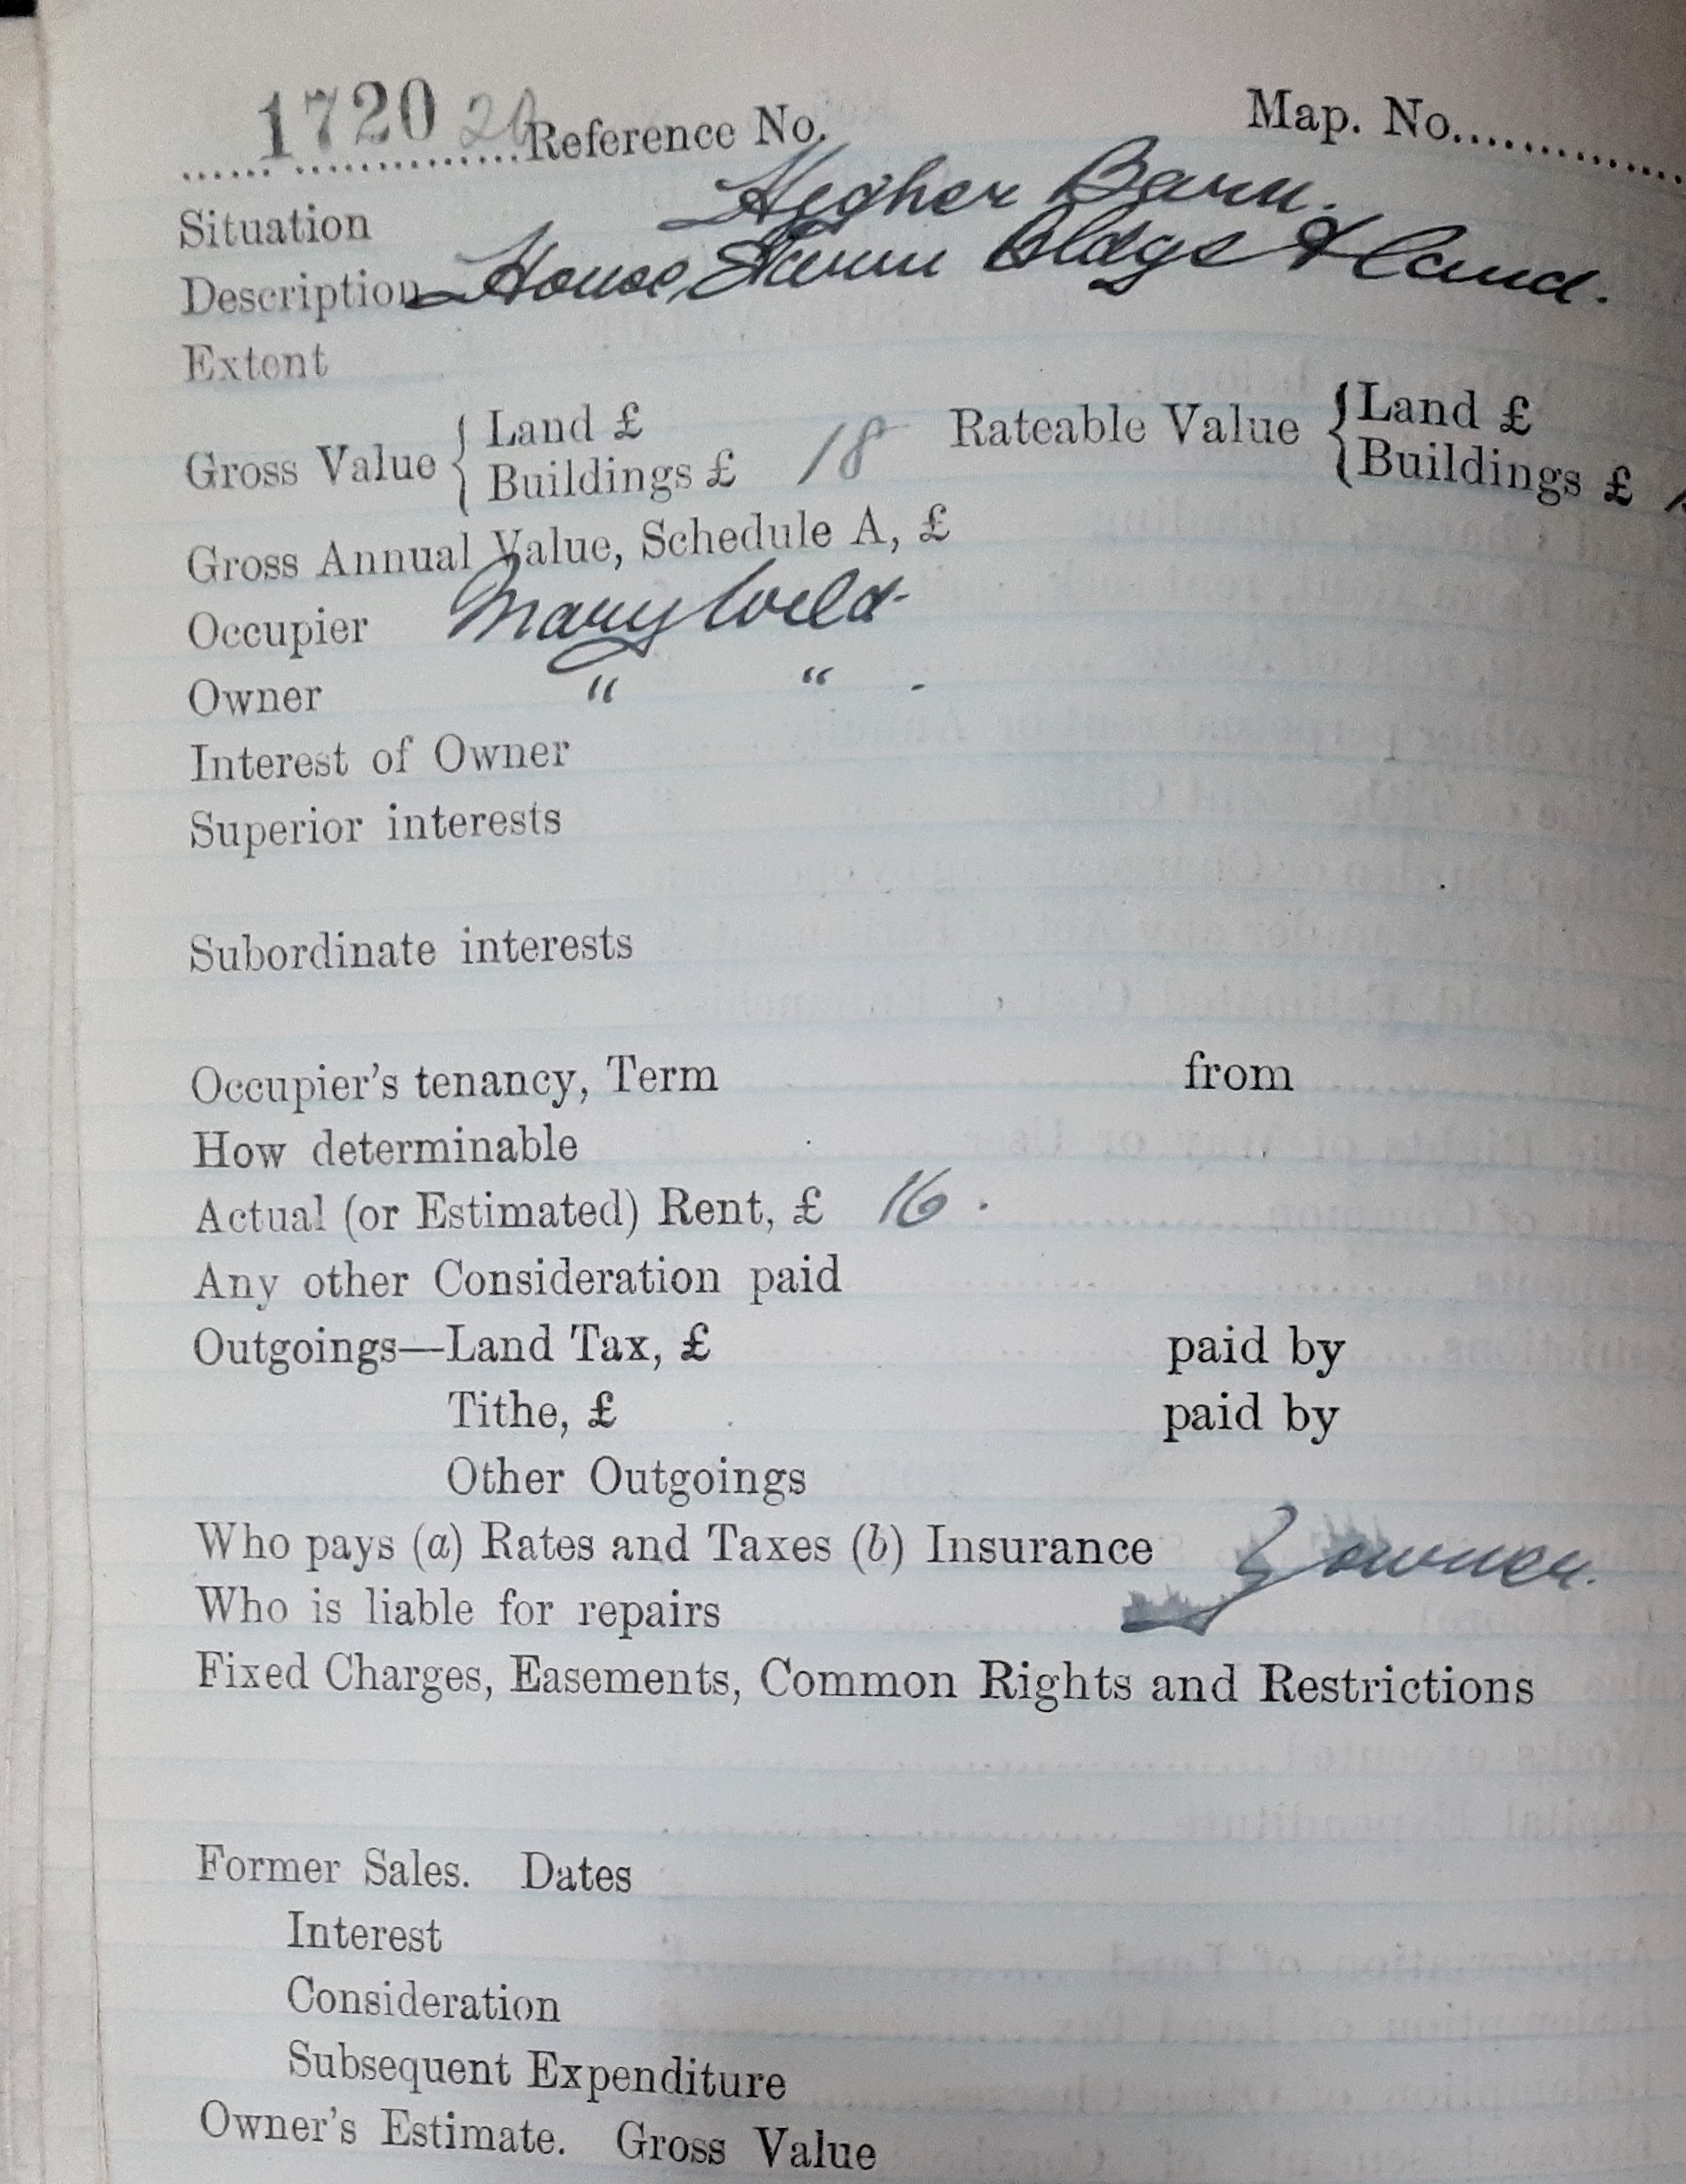 1720 Reference No. Map. No.
Situation Higher Barn.
Description House, Farm Bldgs & land.
Extent
Gross Value { Land £ Rateable Value { Land £
Buildings £ 18 Buildings £
Gross Annual Value, Schedule A, £
Occupier Mary Wild
Owner " " .
Interest of Owner
Superior interests
Subordinate interests
Occupier's tenancy, Term from
How determinable
Actual (or Estimated) Rent, £ 16.
Any other Consideration paid
Outgoings—Land Tax, £ paid by
Tithe, £ paid by
Other Outgoings
Who pays (a) Rates and Taxes (b) Insurance } owner.
Who is liable for repairs
Fixed Charges, Easements, Common Rights and Restrictions
Former Sales. Dates
Interest
Consideration
Subsequent Expenditure
Owner's Estimate. Gross Value